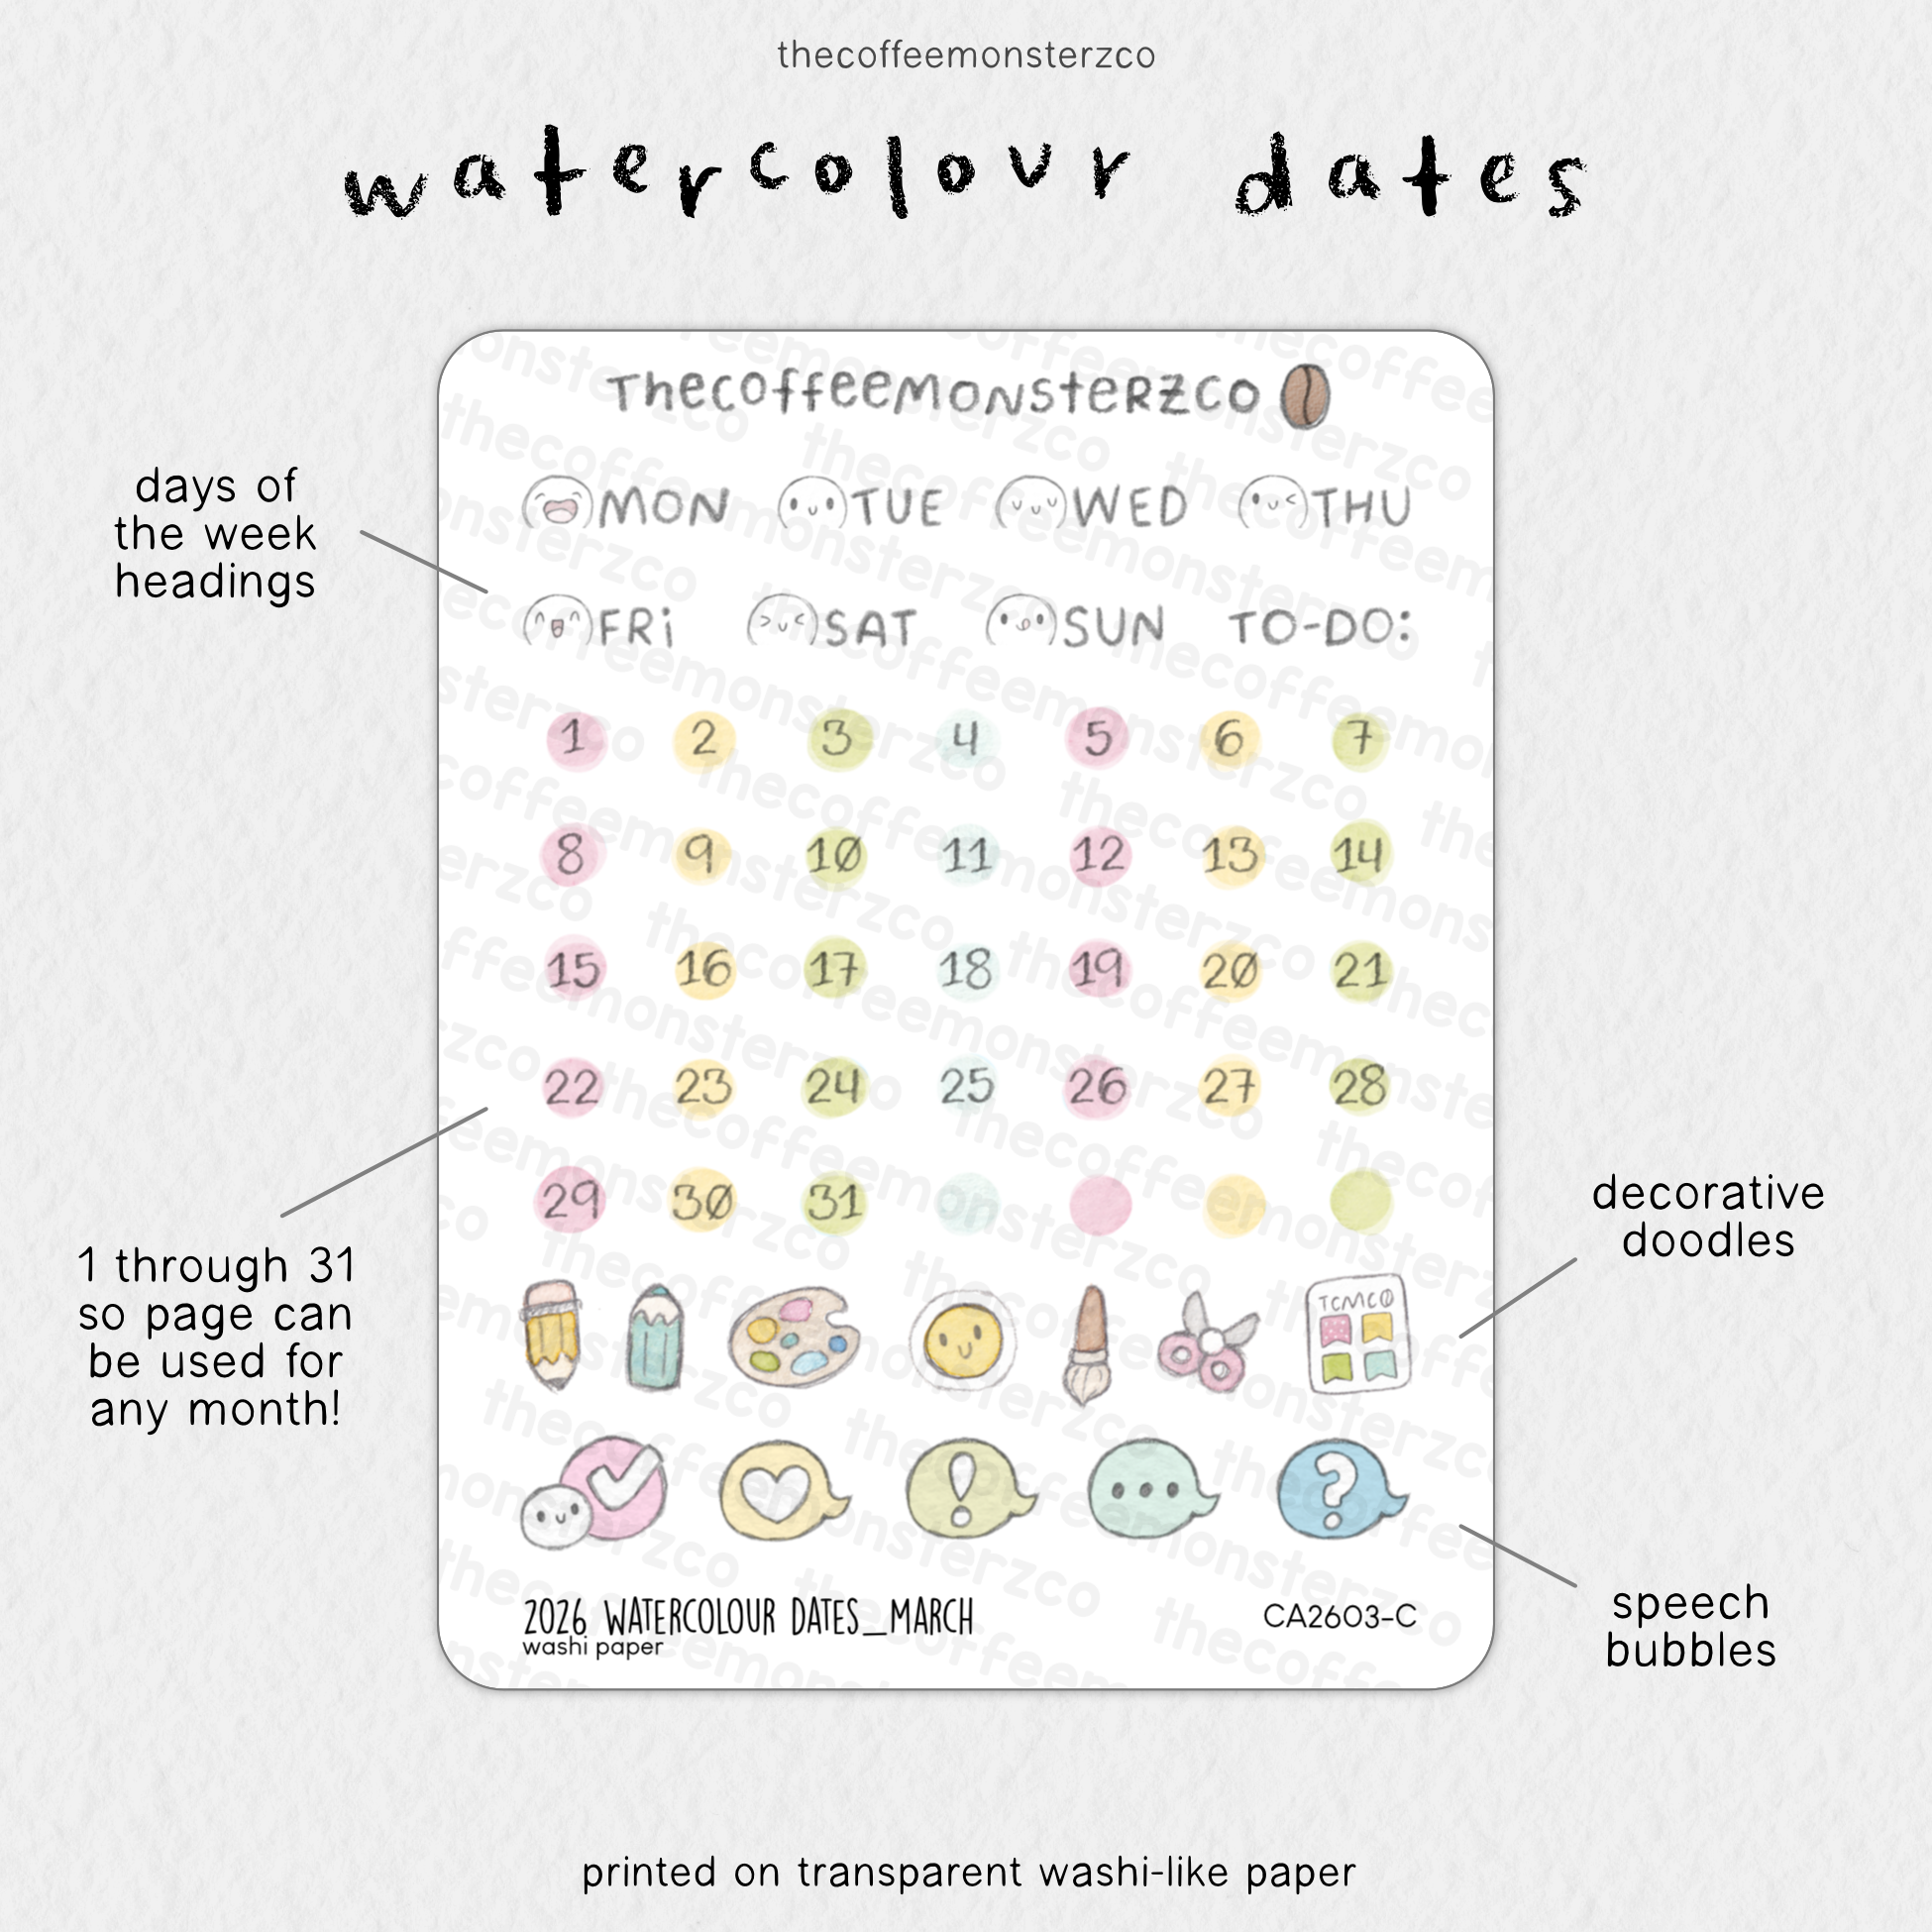 thecoffeemonsterzco
watercolour dates
THecoffeeMONsteRZco
MON TUE WED THU
days of
the week
headings
FRi SAT SUN TO-DO:
1 2 3 4 5 6 7
8 9 10 11 12 13 14
15 16 17 18 19 20 21
22 23 24 25 26 27 28
29 30 31
1 through 31
so page can
be used for
any month!
decorative
doodles
TCMCO
! ... ?
speech
bubbles
2026 WATERCOLOUR DATES_MARCH
washi paper
CA2603-C
printed on transparent washi-like paper